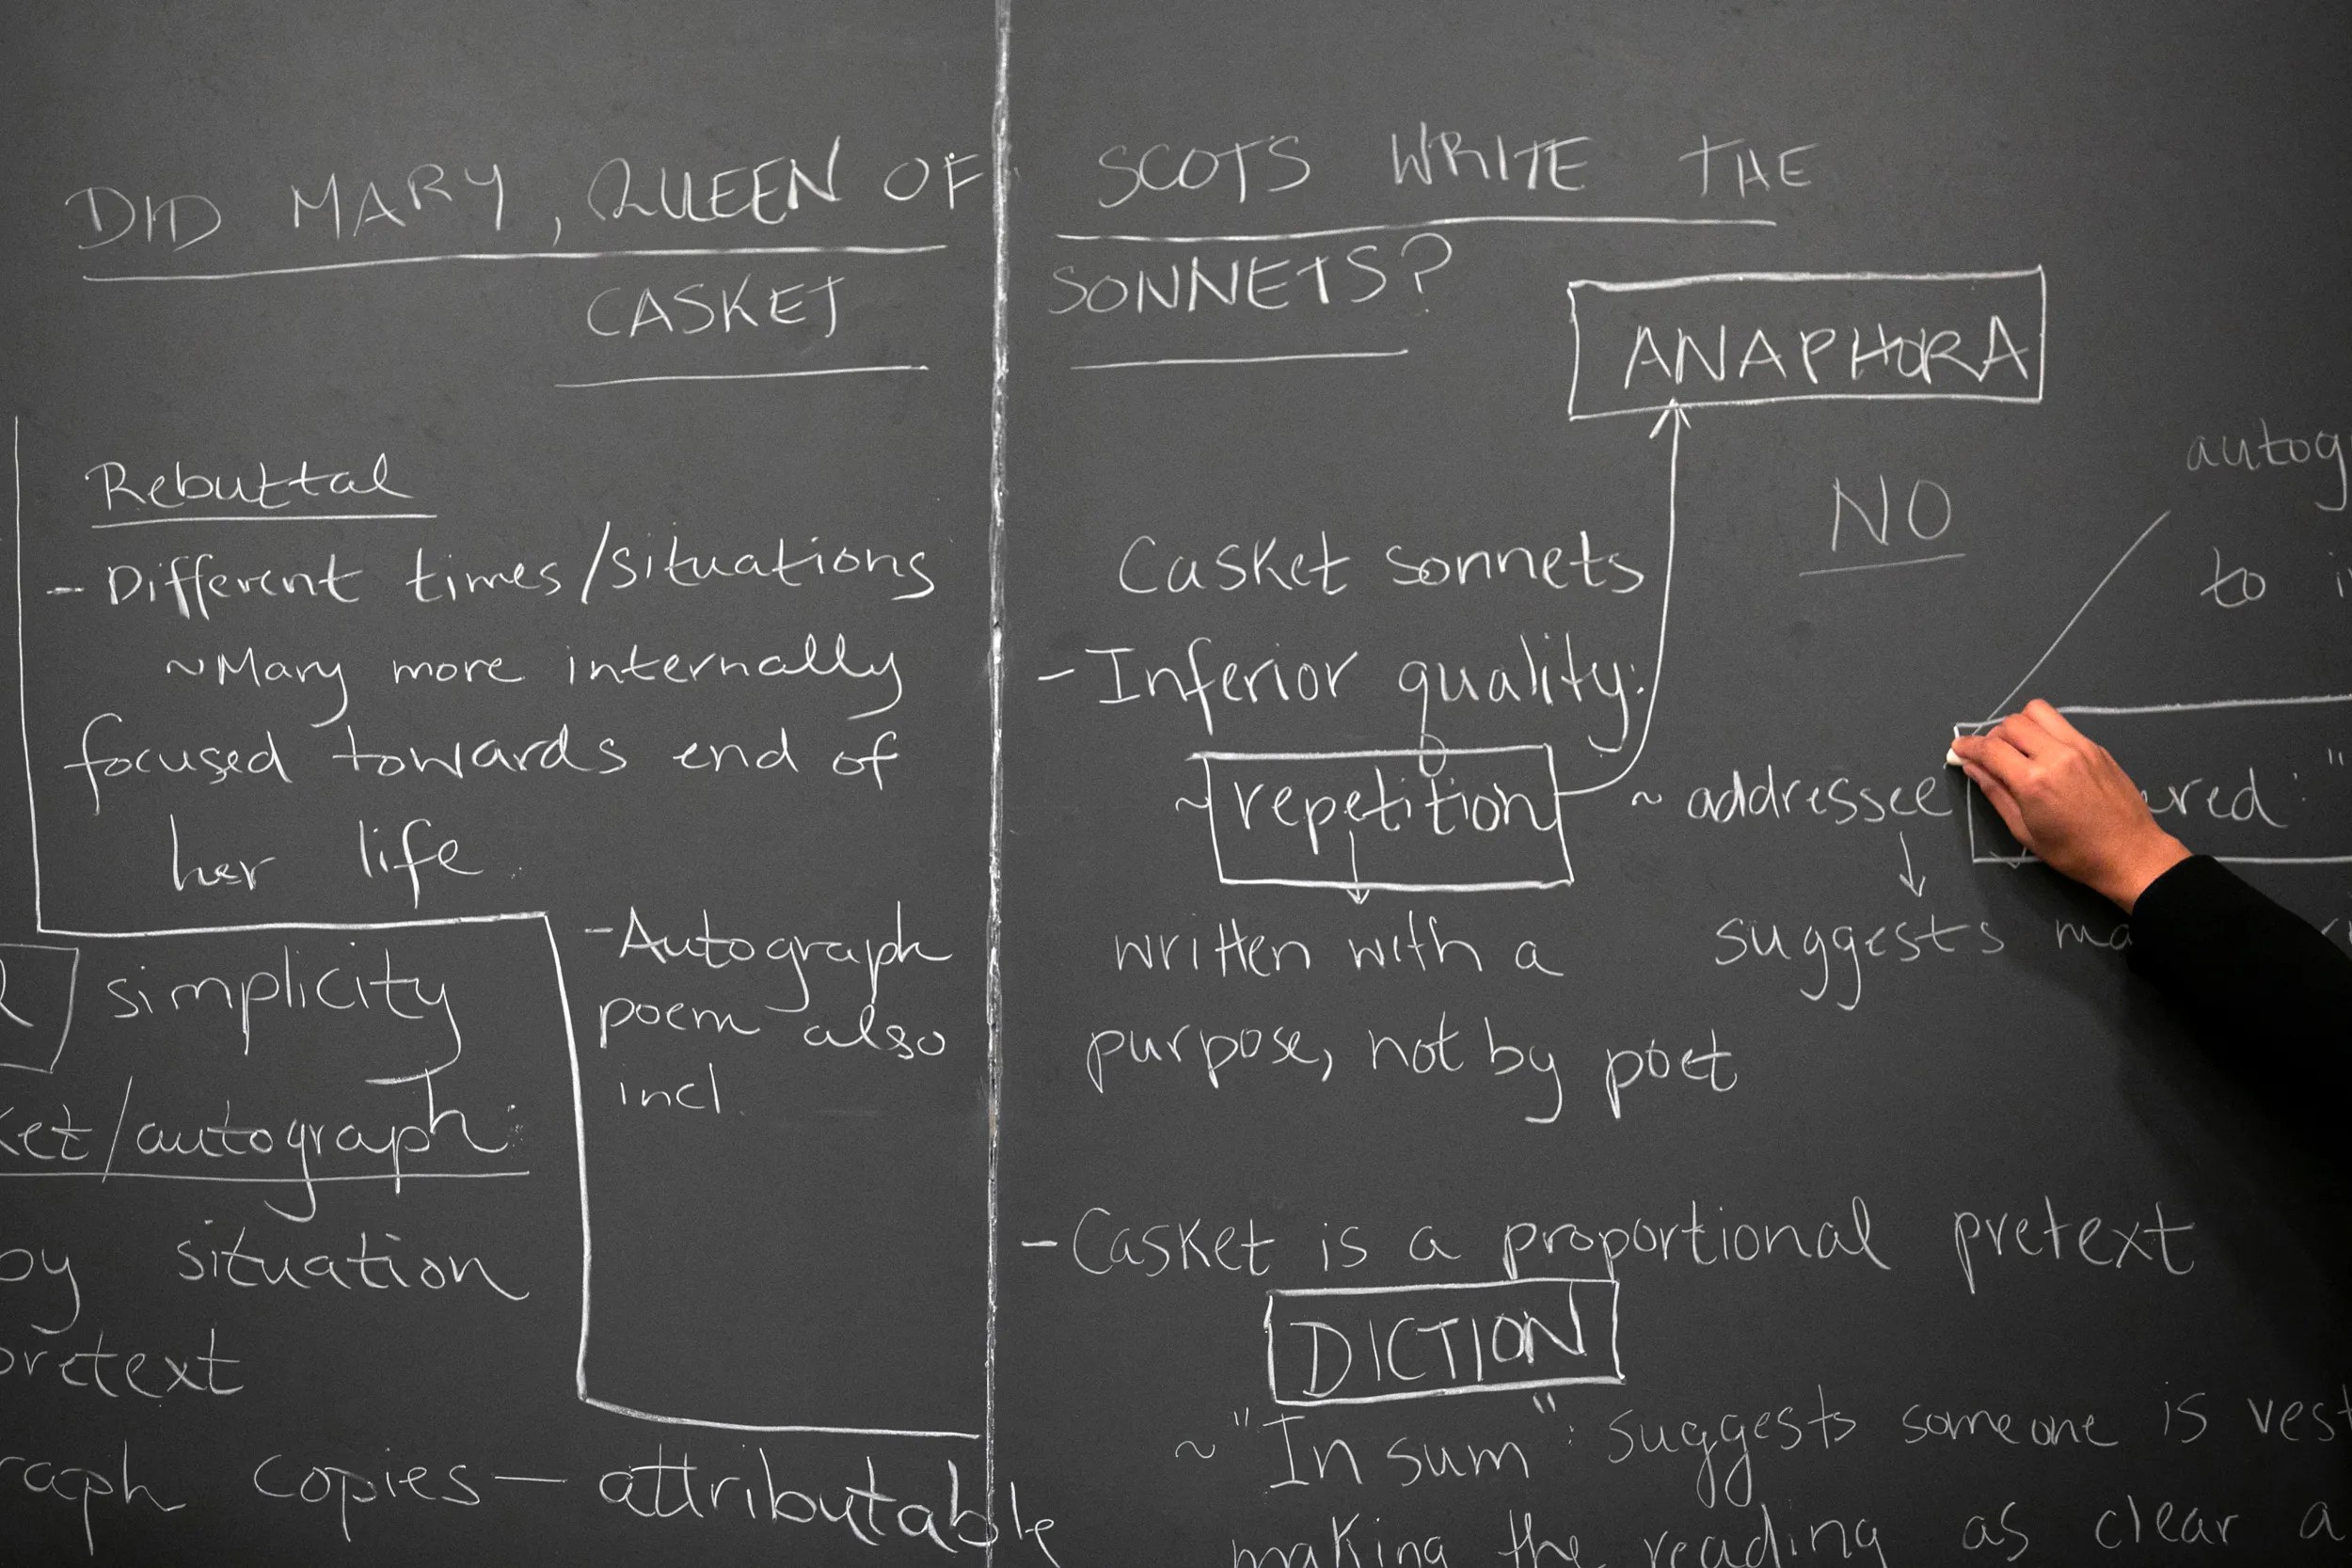 DID MARY, QUEEN OF SCOTS WRITE THE
CASKET SONNETS?
Rebuttal
- Different times/situations
~Mary more internally
focused towards end of
her life
simplicity
ket/autograph:
by situation
pretext
raph copies — attributable
-Autograph
poem also
incl.
ANAPHORA
NO
Casket sonnets
- Inferior quality:
~ repetition
written with a
purpose, not by poet
autog
to
~ addressee ered: "
suggests ma
- Casket is a proportional pretext
DICTION
~ "In sum": suggests someone is vest
making the reading as clear a